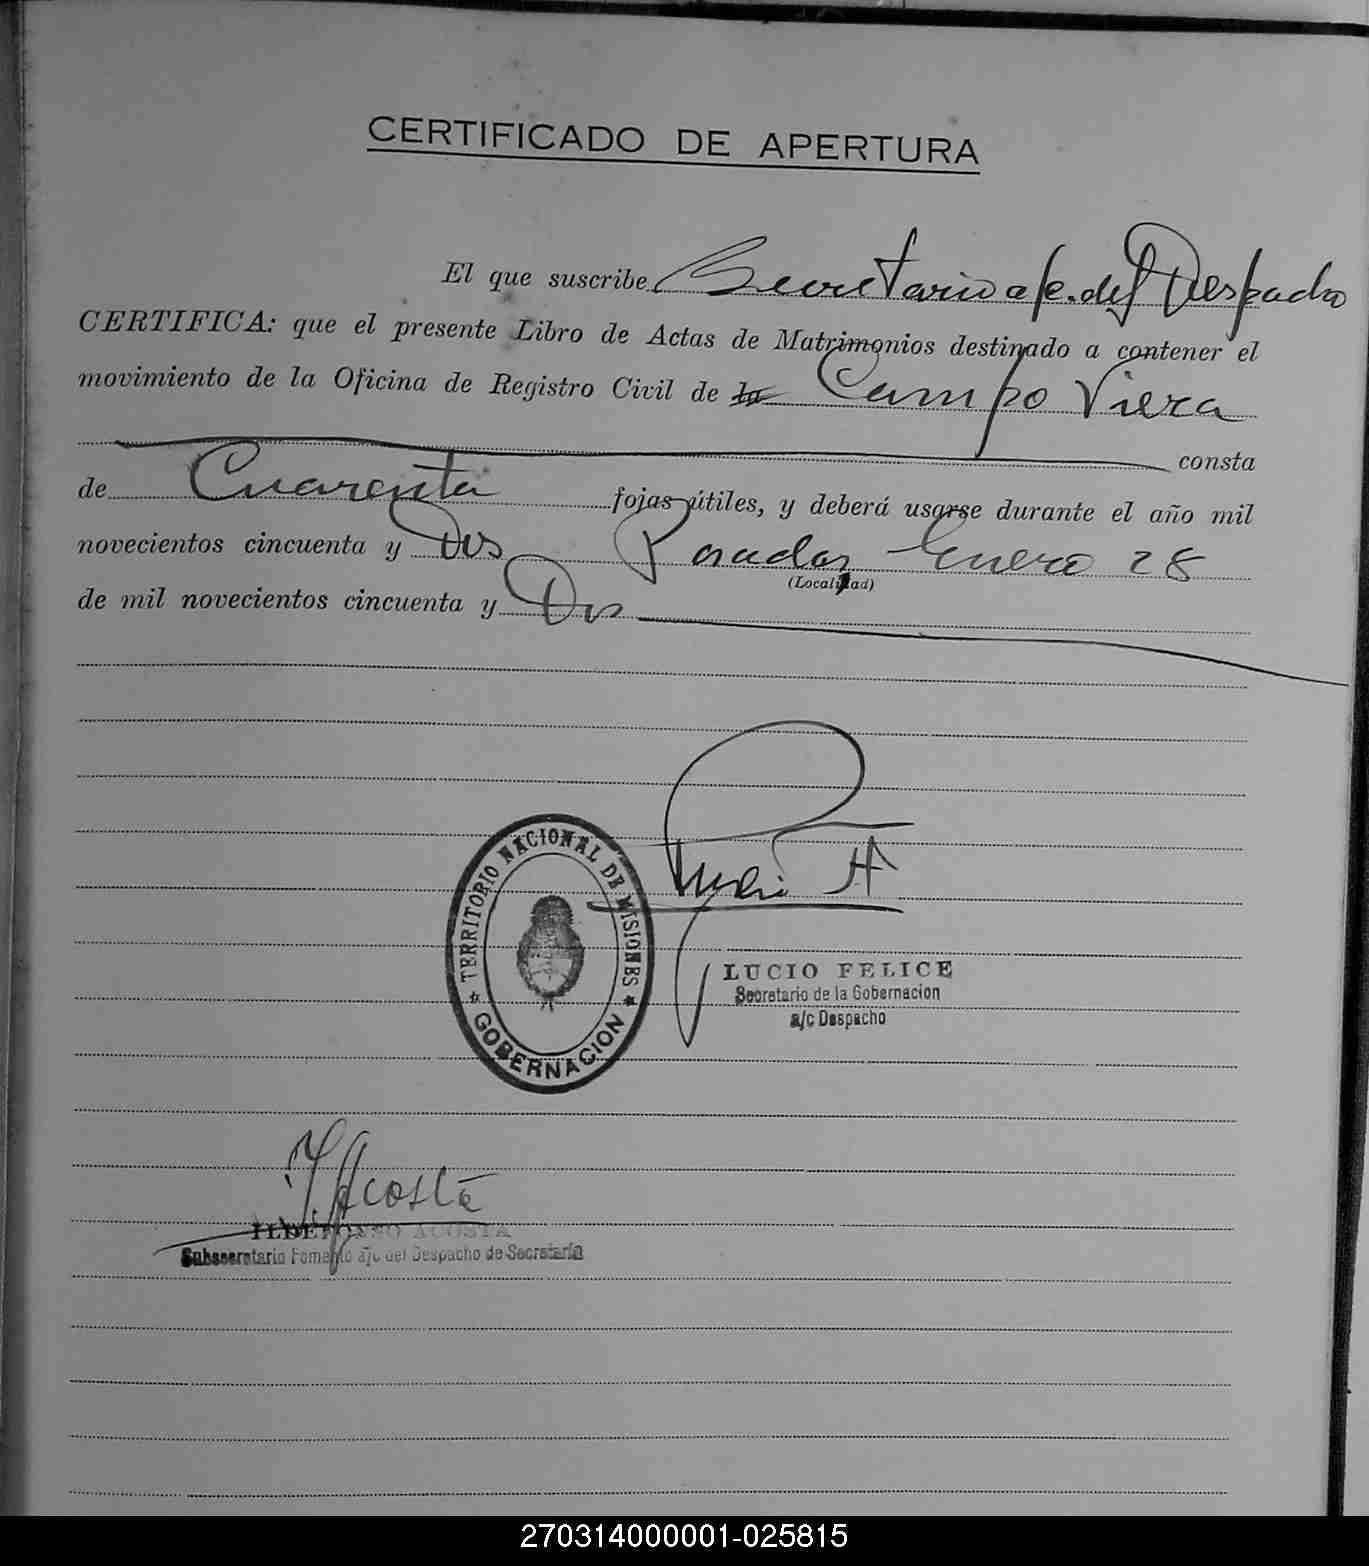 CERTIFICADO DE APERTURA
El que suscribe Secretario a/c. del Despacho
CERTIFICA: que el presente Libro de Actas de Matrimonios destinado a contener el
movimiento de la Oficina de Registro Civil de la Campo Viera
consta
de Cuarenta fojas útiles, y deberá usarse durante el año mil
novecientos cincuenta y Dos Posadas Enero 28
(Localidad)
de mil novecientos cincuenta y Dos
TERRITORIO NACIONAL DE MISIONES
GOBERNACION
LUCIO FELICE
Secretario de la Gobernacion
a/c Despacho
I. Acosta
ILDEFONSO ACOSTA
Subsecretario Fomento a/c del Despacho de Secretaría
270314000001-025815